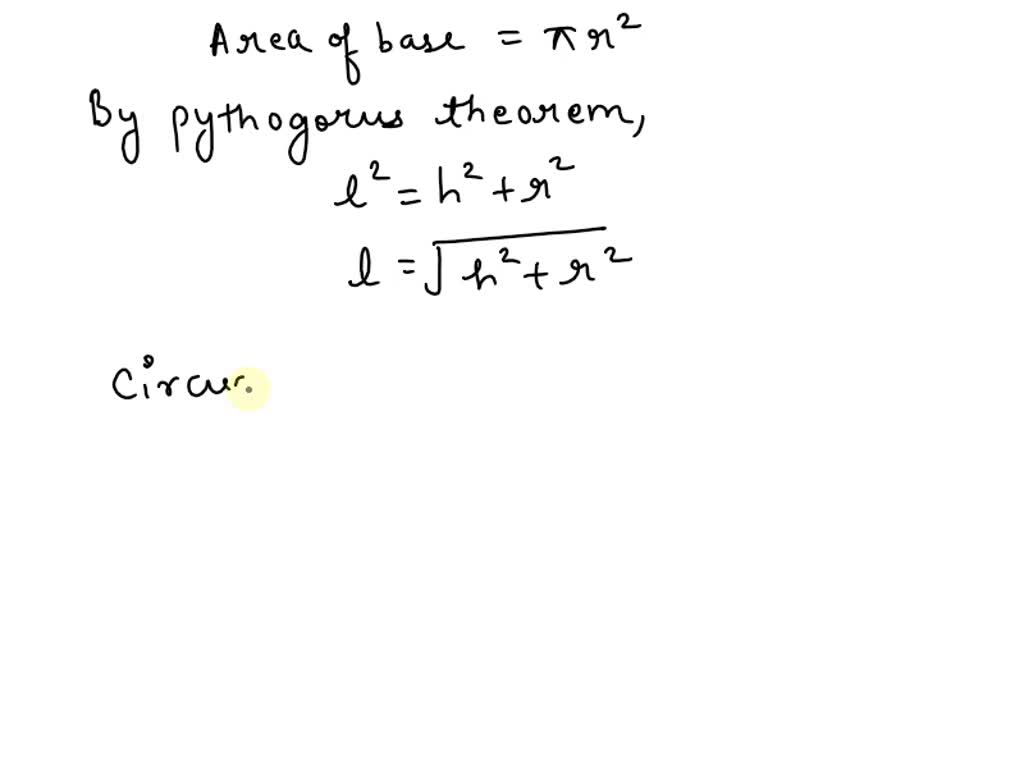 Area of base = πr²
By pythogorus theorem,
l² = h² + r²
l = √h² + r²
Circu